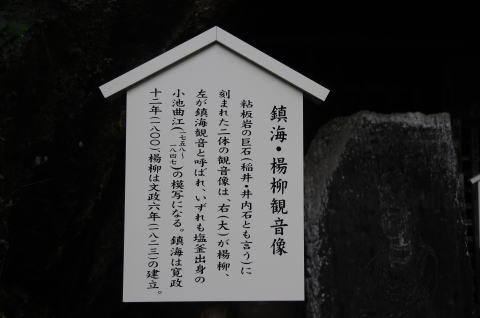 鎮海・楊柳観音像
粘板岩の巨石(稲井・井内石とも言う)に
刻まれた二体の観音像は、右(大)が楊柳、
左が鎮海観音と呼ばれ、いずれも塩釜出身の
小池曲江(一七五八〜一八四七)の模写になる。鎮海は寛政
十二年(一八〇〇)、楊柳は文政六年(一八二三)の建立。